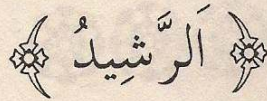 ﴿ اَلرَّشِيدُ ﴾